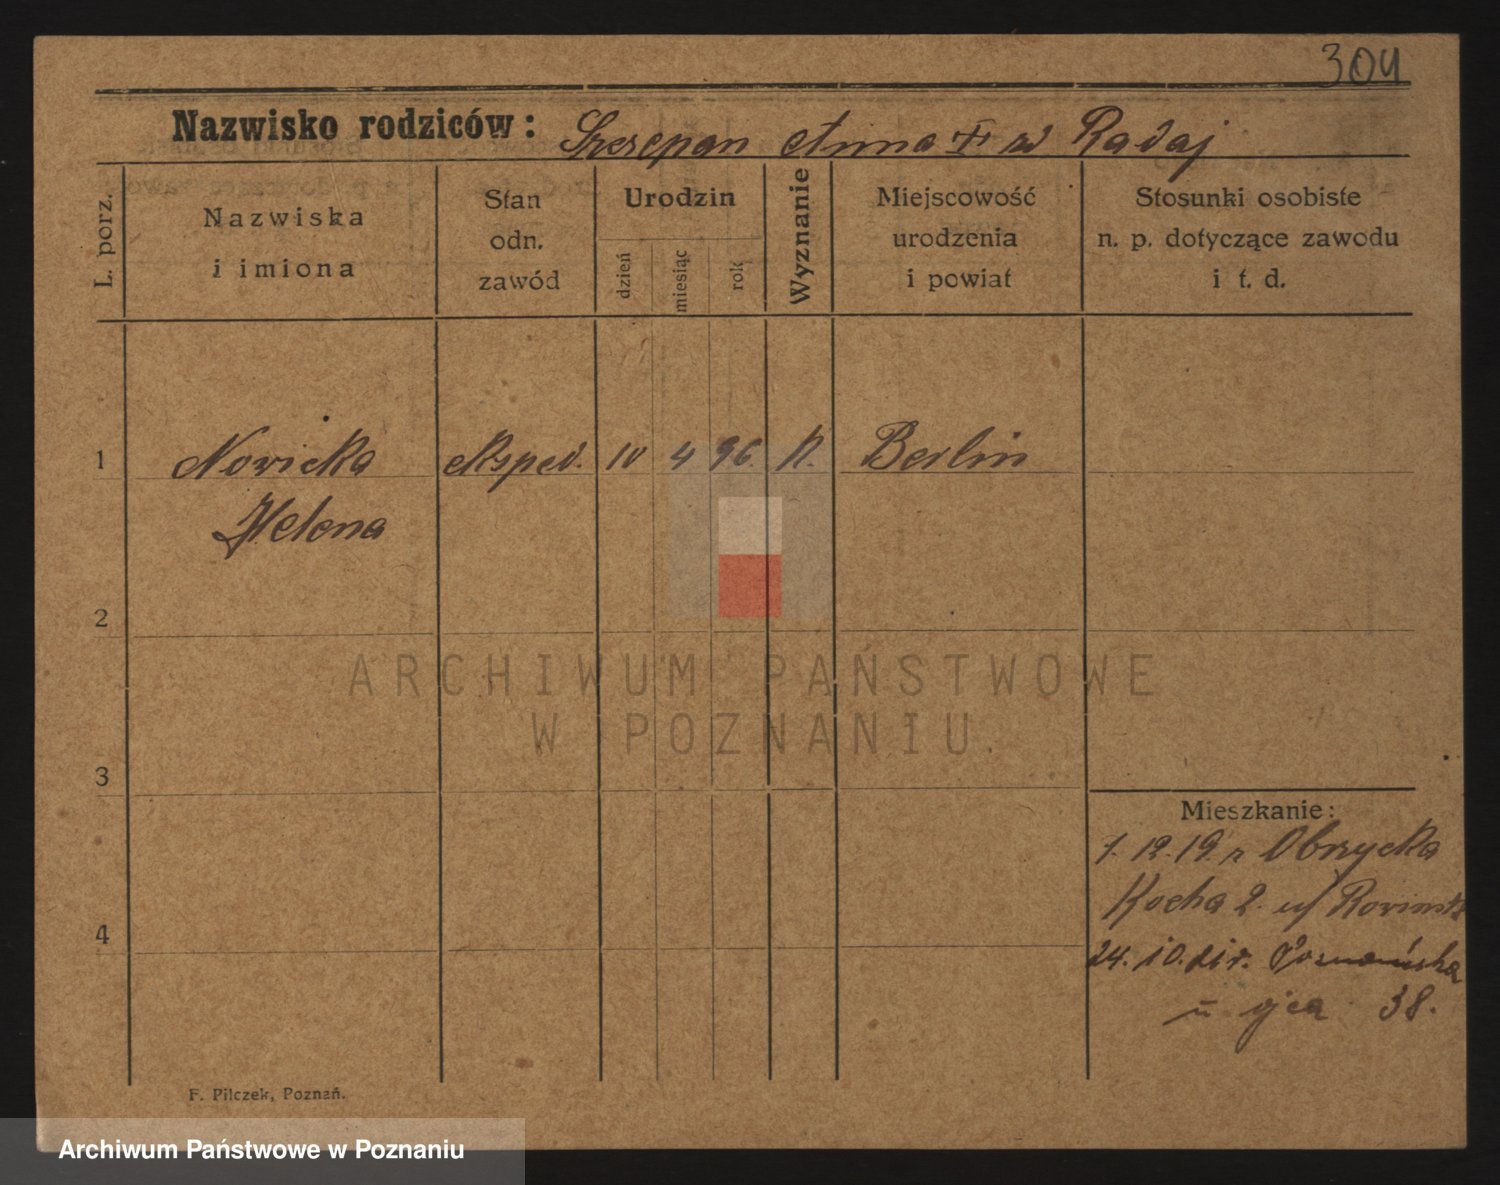 304
Nazwisko rodziców: Szczepan Anna zd Radaj
L. porz.
Nazwiska i imiona
Stan odn. zawód
Urodzin
dzień
miesiąc
rok
Wyznanie
Miejscowość urodzenia i powiat
Stosunki osobiste n. p. dotyczące zawodu i t. d.
1 Nowicka eksped. 10 4 96. k. Berlin
Helena
2
ARCHIWUM PAŃSTWOWE
W POZNANIU.
3
Mieszkanie:
7.12.19. Obrzycka
Kocha 2.
4
24.10.21 r. Poznańska
u ojca 38.
F. Pilczek, Poznań.
Archiwum Państwowe w Poznaniu